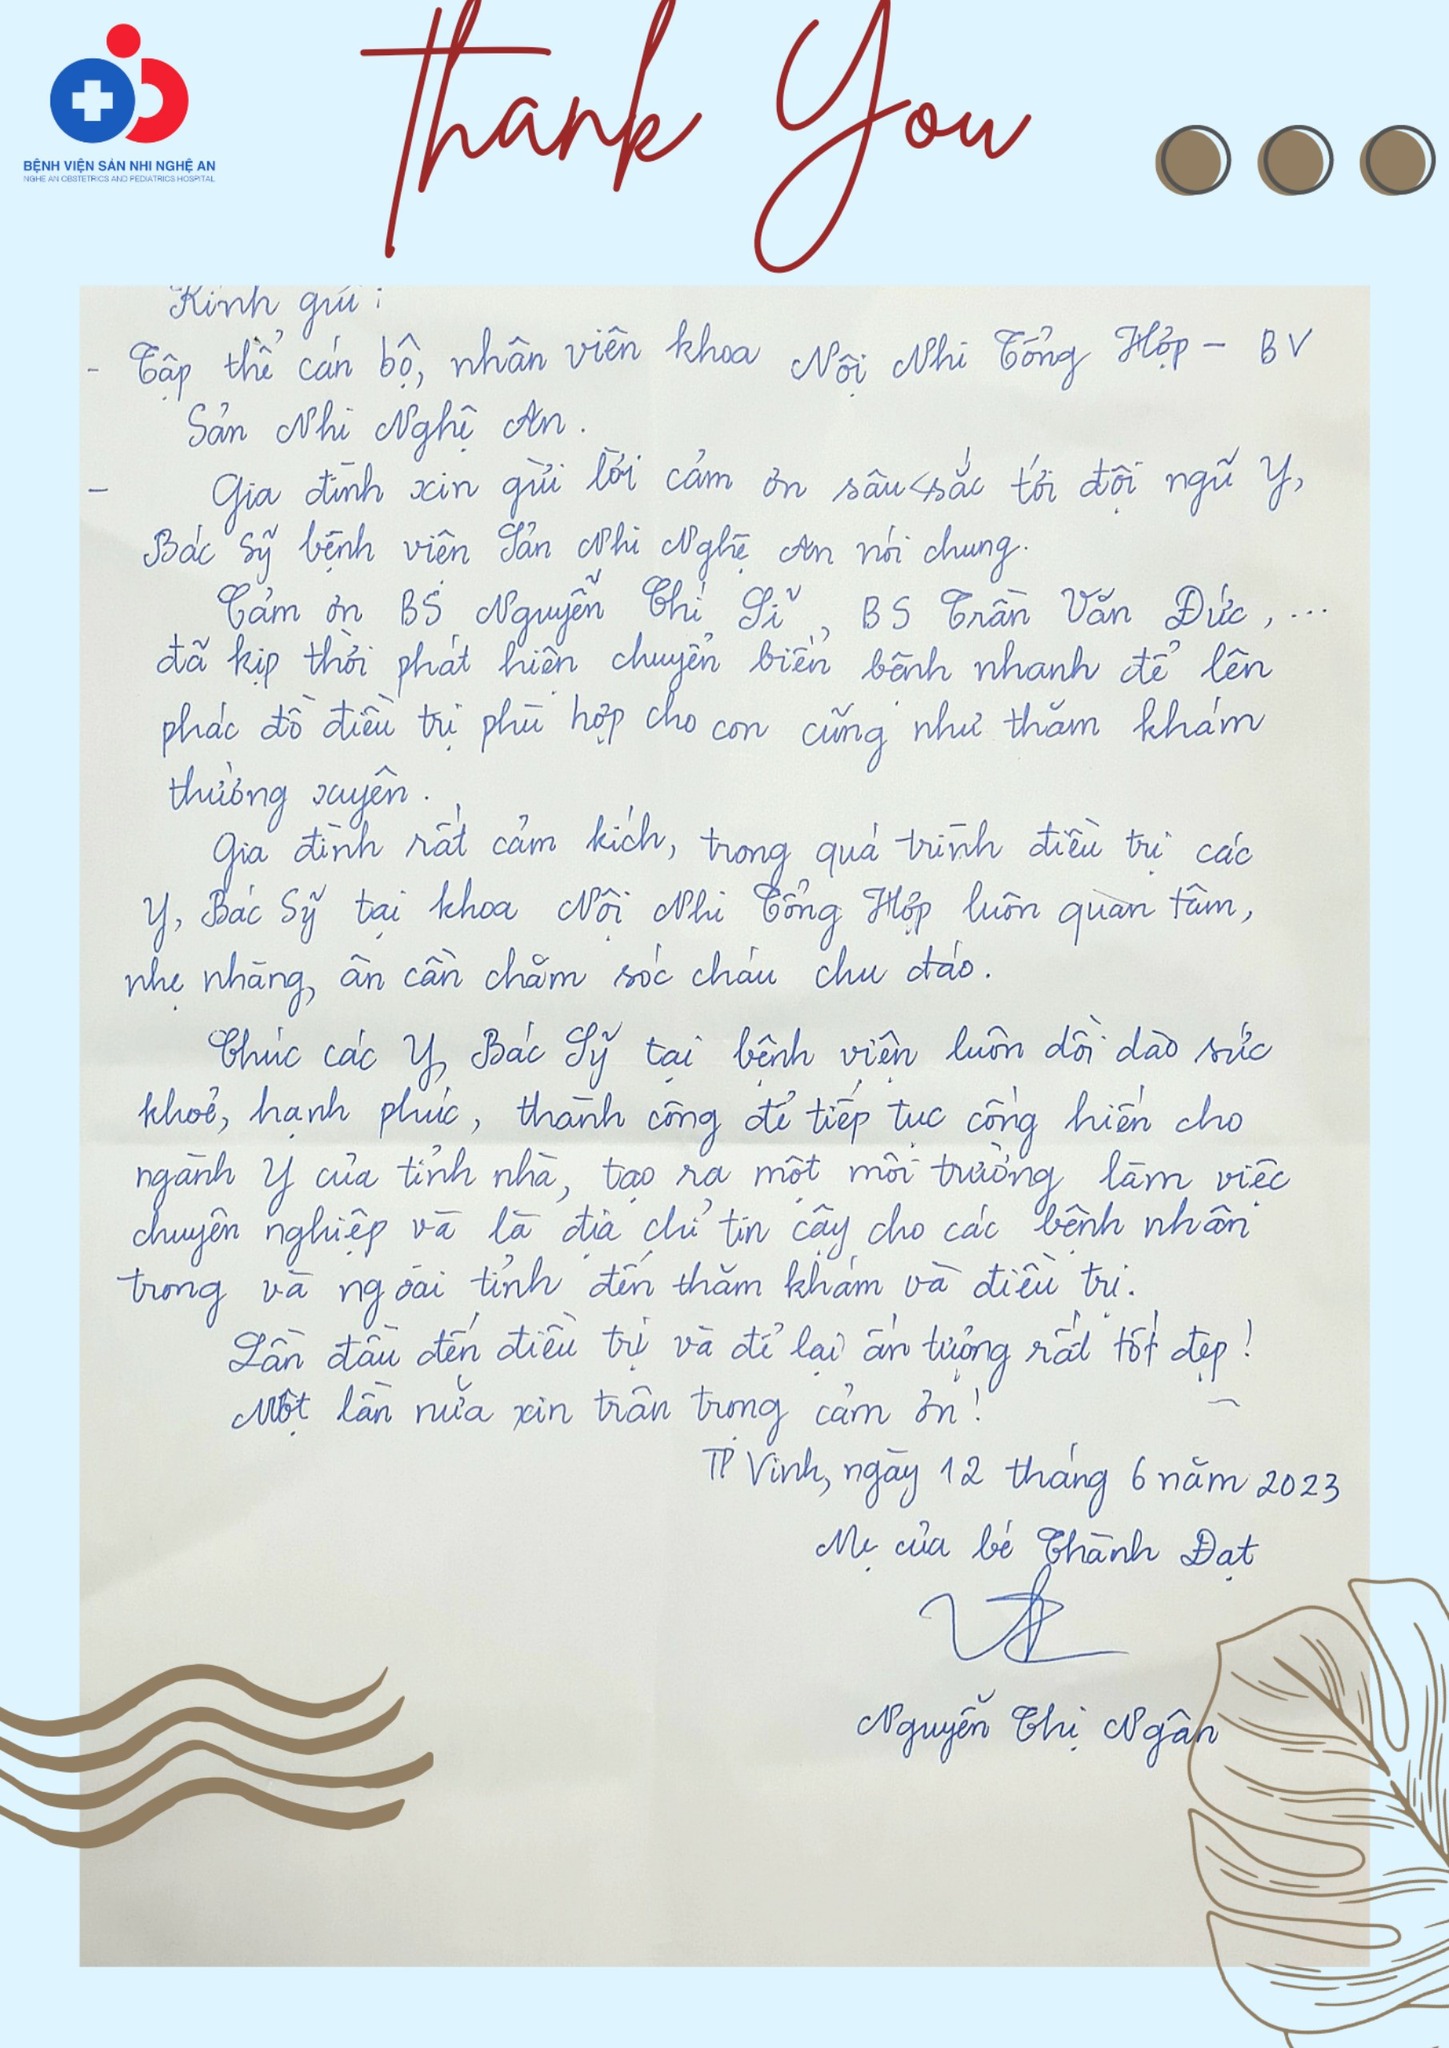 Thank You
BỆNH VIỆN SẢN NHI NGHỆ AN
NGHE AN OBSTETRICS AND PEDIATRICS HOSPITAL
Kính gửi:
- Tập thể cán bộ, nhân viên khoa Nội Nhi Tổng Hợp - BV
Sản Nhi Nghệ An.
- Gia đình xin gửi lời cảm ơn sâu sắc tới đội ngũ Y,
Bác Sỹ bệnh viên Sản Nhi Nghệ An nói chung.
Cảm ơn BS Nguyễn Thị Sĩ, BS Trần Văn Đức, ...
đã kịp thời phát hiện chuyển biến bệnh nhanh để lên
phác đồ điều trị phù hợp cho con cũng như thăm khám
thường xuyên.
Gia đình rất cảm kích, trong quá trình điều trị các
Y, Bác Sỹ tại khoa Nội Nhi Tổng Hợp luôn quan tâm,
nhẹ nhàng, ân cần chăm sóc cháu chu đáo.
Chúc các Y, Bác Sỹ tại bệnh viện luôn dồi dào sức
khoẻ, hạnh phúc, thành công để tiếp tục cống hiến cho
ngành Y của tỉnh nhà, tạo ra một môi trường làm việc
chuyên nghiệp và là địa chỉ tin cậy cho các bệnh nhân
trong và ngoài tỉnh đến thăm khám và điều trị.
Lần đầu đến điều trị và để lại ấn tượng rất tốt đẹp!
Một lần nữa xin trân trọng cảm ơn!
TP Vinh, ngày 12 tháng 6 năm 2023
Mẹ của bé Thành Đạt
Nguyễn Thị Ngân